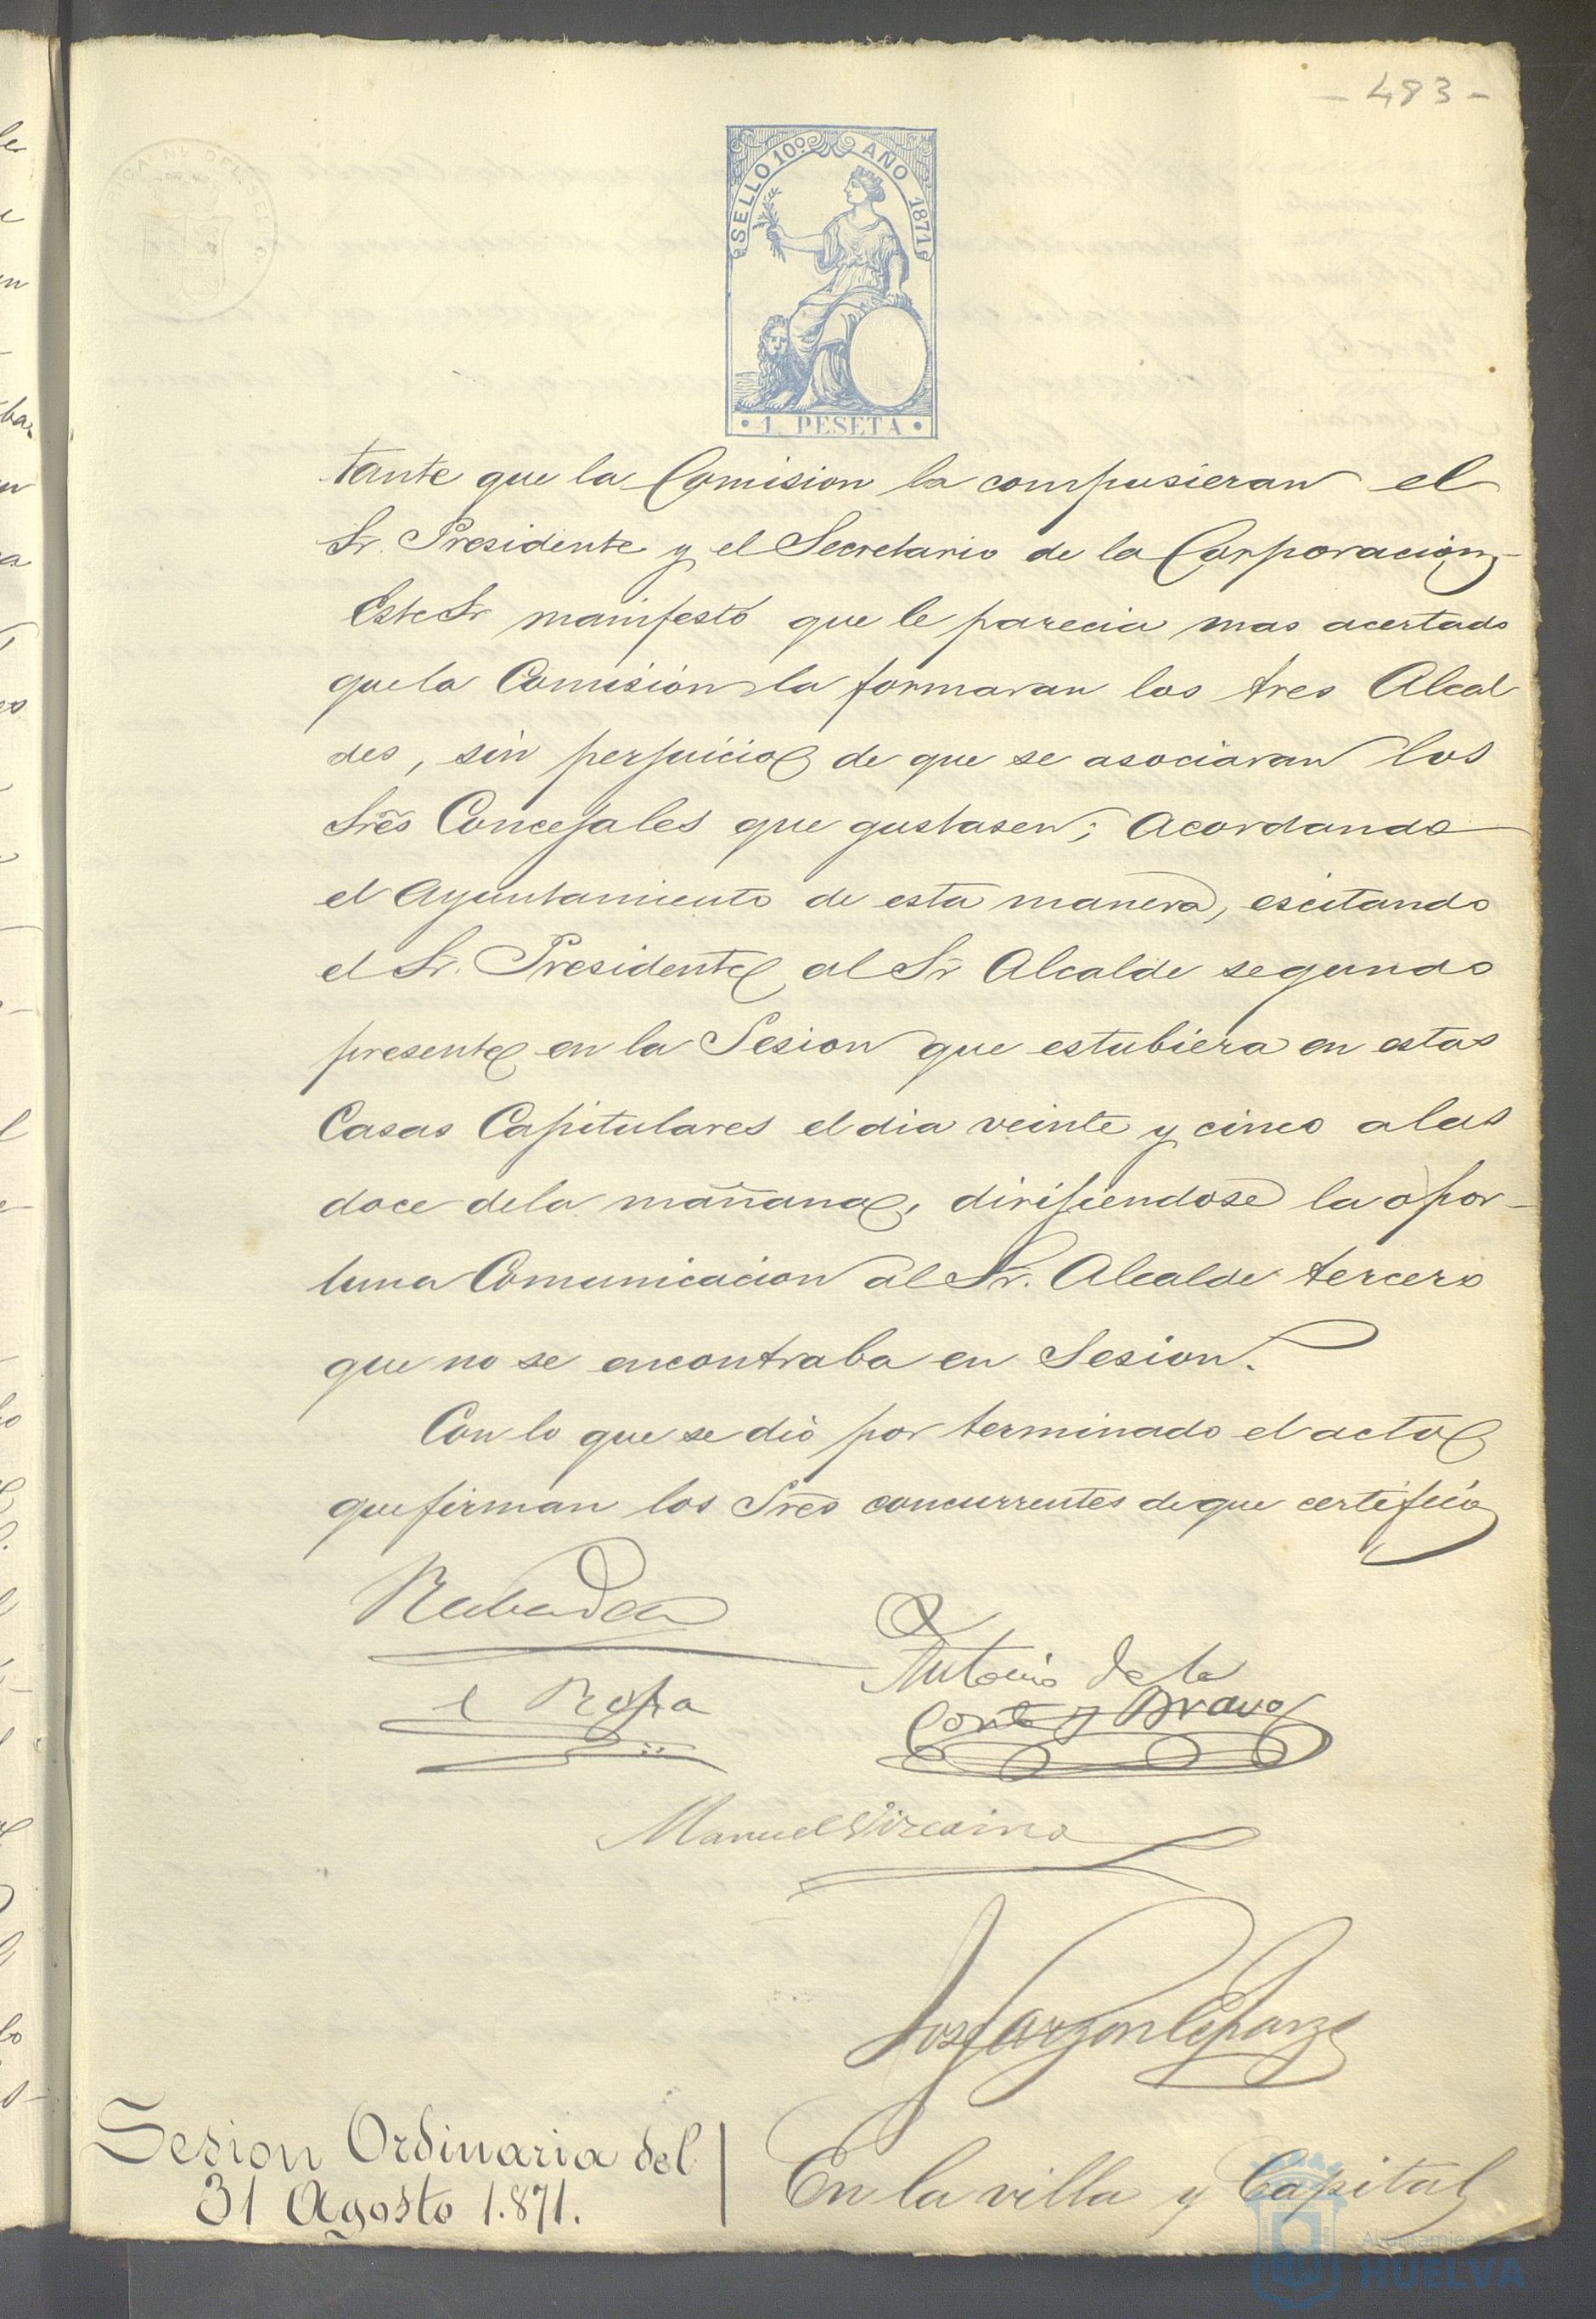 - 483 -
SELLO 10º AÑO 1871
1 PESETA
tante que la Comision la compusieran el
Sr. Presidente y el Secretario de la Corporacion,-
Este Sr manifestó que le parecia mas acertado
que la Comisión la formaran los tres Alcal
des, sin perjuicio de que se asociaran los
Sres Concejales que gustasen; Acordando
el Ayuntamiento de esta manera, escitando
el Sr. Presidente al Sr Alcalde segundo
presente en la Sesion que estubiera en estas
Casas Capitulares el dia veinte y cinco a las
doce dela mañana, dirijiendose la opor-
tuna Comunicacion al Sr. Alcalde tercero
que no se encontraba en Sesion.
Con lo que se dió por terminado el acto
que firman los Sres concurrentes de que certifico
Rabadan
Antonio de la
Corte y Bravo
Manuel Vizcaino
Jose Garzon
Sesion Ordinaria del
31 Agosto 1.871.
En la villa y Capital
Ayuntamiento de
HUELVA